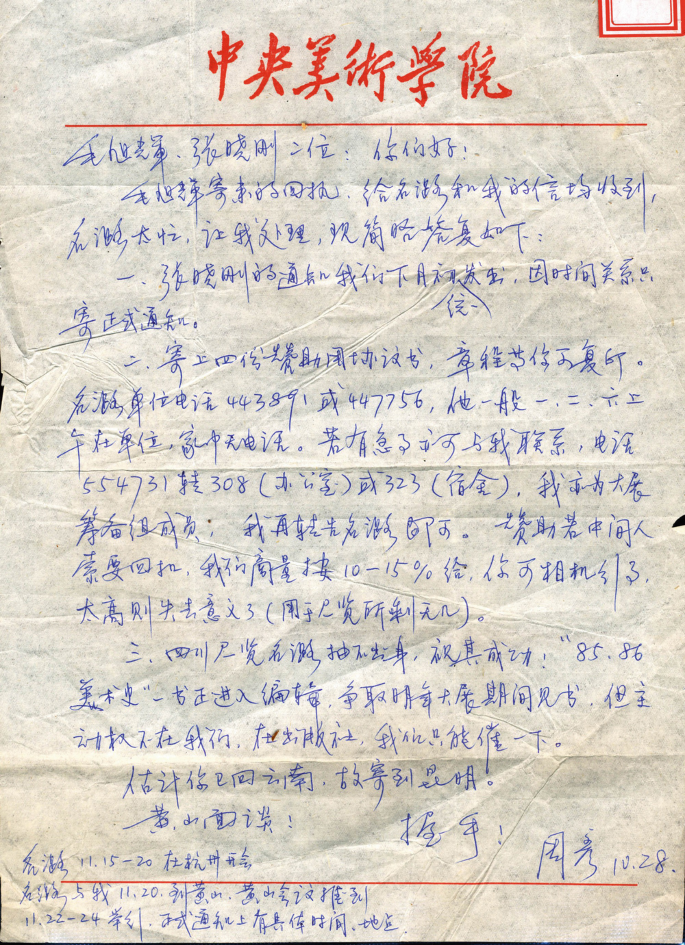 中央美術学院
毛旭辉、张晓刚二位：你们好！
毛旭辉寄来的回执、给名潞和我的信均收到，
名潞太忙，让我处理，现简略答复如下：
一、张晓刚的通知我们下月初发出，因时间关系只
统一
寄正式通知。
二、寄上四份赞助用协议书，章程等你可复印。
名潞单位电话443891或447756，他一般一、二、六上
午在单位，家中无电话。若有急事亦可与我联系，电话
554731转308（办公室）或323（宿舍），我亦为大展
筹备组成员；我再转告名潞即可。赞助若中间人
索要回扣，我们商量按10-15%给，你可相机行事，
太高则失去意义了（用于展览所剩无几）。
三、四川展览名潞抽不出身，祝其成功！"85、86
美术史"一书正进入编辑，争取明年大展期间见书，但主
动权不在我们，在出版社，我们只能催一下。
估计你已回云南，故寄到昆明。
黄山面谈！
握手！
周彦 10.28.
名潞 11.15-20 在杭州开会
名潞与我11.20.到黄山，黄山会议推到
11.22-24举行，正式通知上有具体时间、地点